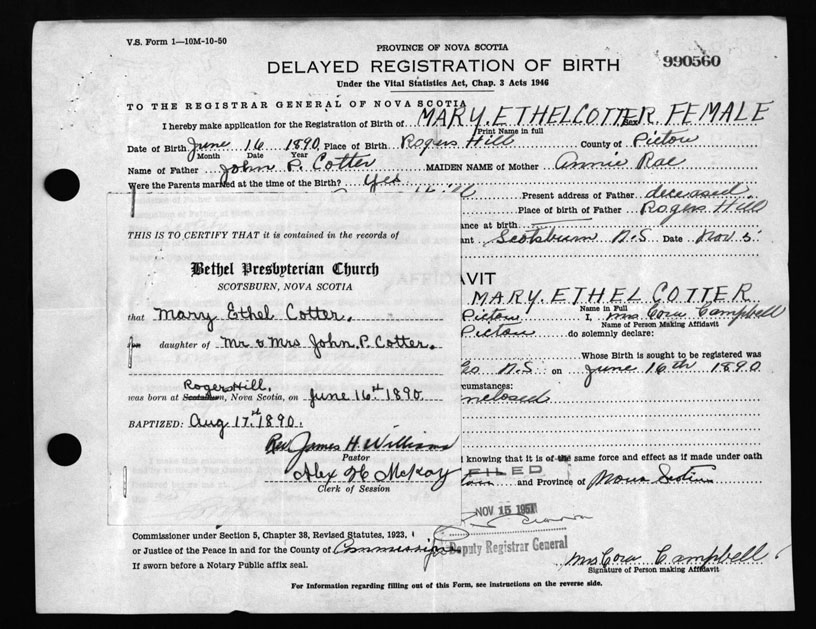 V.S. Form 1—10M-10-50
PROVINCE OF NOVA SCOTIA
DELAYED REGISTRATION OF BIRTH
990560
Under the Vital Statistics Act, Chap. 3 Acts 1946
TO THE REGISTRAR GENERAL OF NOVA SCOTIA
I hereby make application for the Registration of Birth of MARY. ETHEL COTTER Sex FEMALE
Print Name in full
Date of Birth June 16 1890 Place of Birth Rogers Hill County of Pictou
Month Date Year
Name of Father John P. Cotter MAIDEN NAME of Mother Annie Rae
Were the Parents married at the time of the Birth? Yes
Present address of Father deceased
Place of birth of Father Rogers Hill
ance at birth
ant Scotsburn N.S Date Nov 5
THIS IS TO CERTIFY THAT it is contained in the records of
Bethel Presbyterian Church
SCOTSBURN, NOVA SCOTIA
that Mary Ethel Cotter.
daughter of Mr & Mrs John. P. Cotter.
Rogers Hill,
was born at Scotsburn, Nova Scotia, on June 16th 1890.
BAPTIZED: Aug 17th 1890.
Rev James H. Williams
Pastor
Alex H McKay
Clerk of Session
AVIT
MARY. ETHEL COTTER
Name in Full
Pictou I, Mrs Cora Campbell
Name of Person Making Affidavit
Pictou do solemnly declare:
Whose Birth is sought to be registered was
Co. N.S on June 16th 1890
cumstances:
nclosed
knowing that it is of the same force and effect as if made under oath
FILED
and Province of Nova Scotia
NOV 15 1951
Deputy Registrar General
Commissioner under Section 5, Chapter 38, Revised Statutes, 1923,
or Justice of the Peace in and for the County of
If sworn before a Notary Public affix seal.
Mrs Cora Campbell
Signature of Person making Affidavit
For Information regarding filling out of this Form, see instructions on the reverse side.